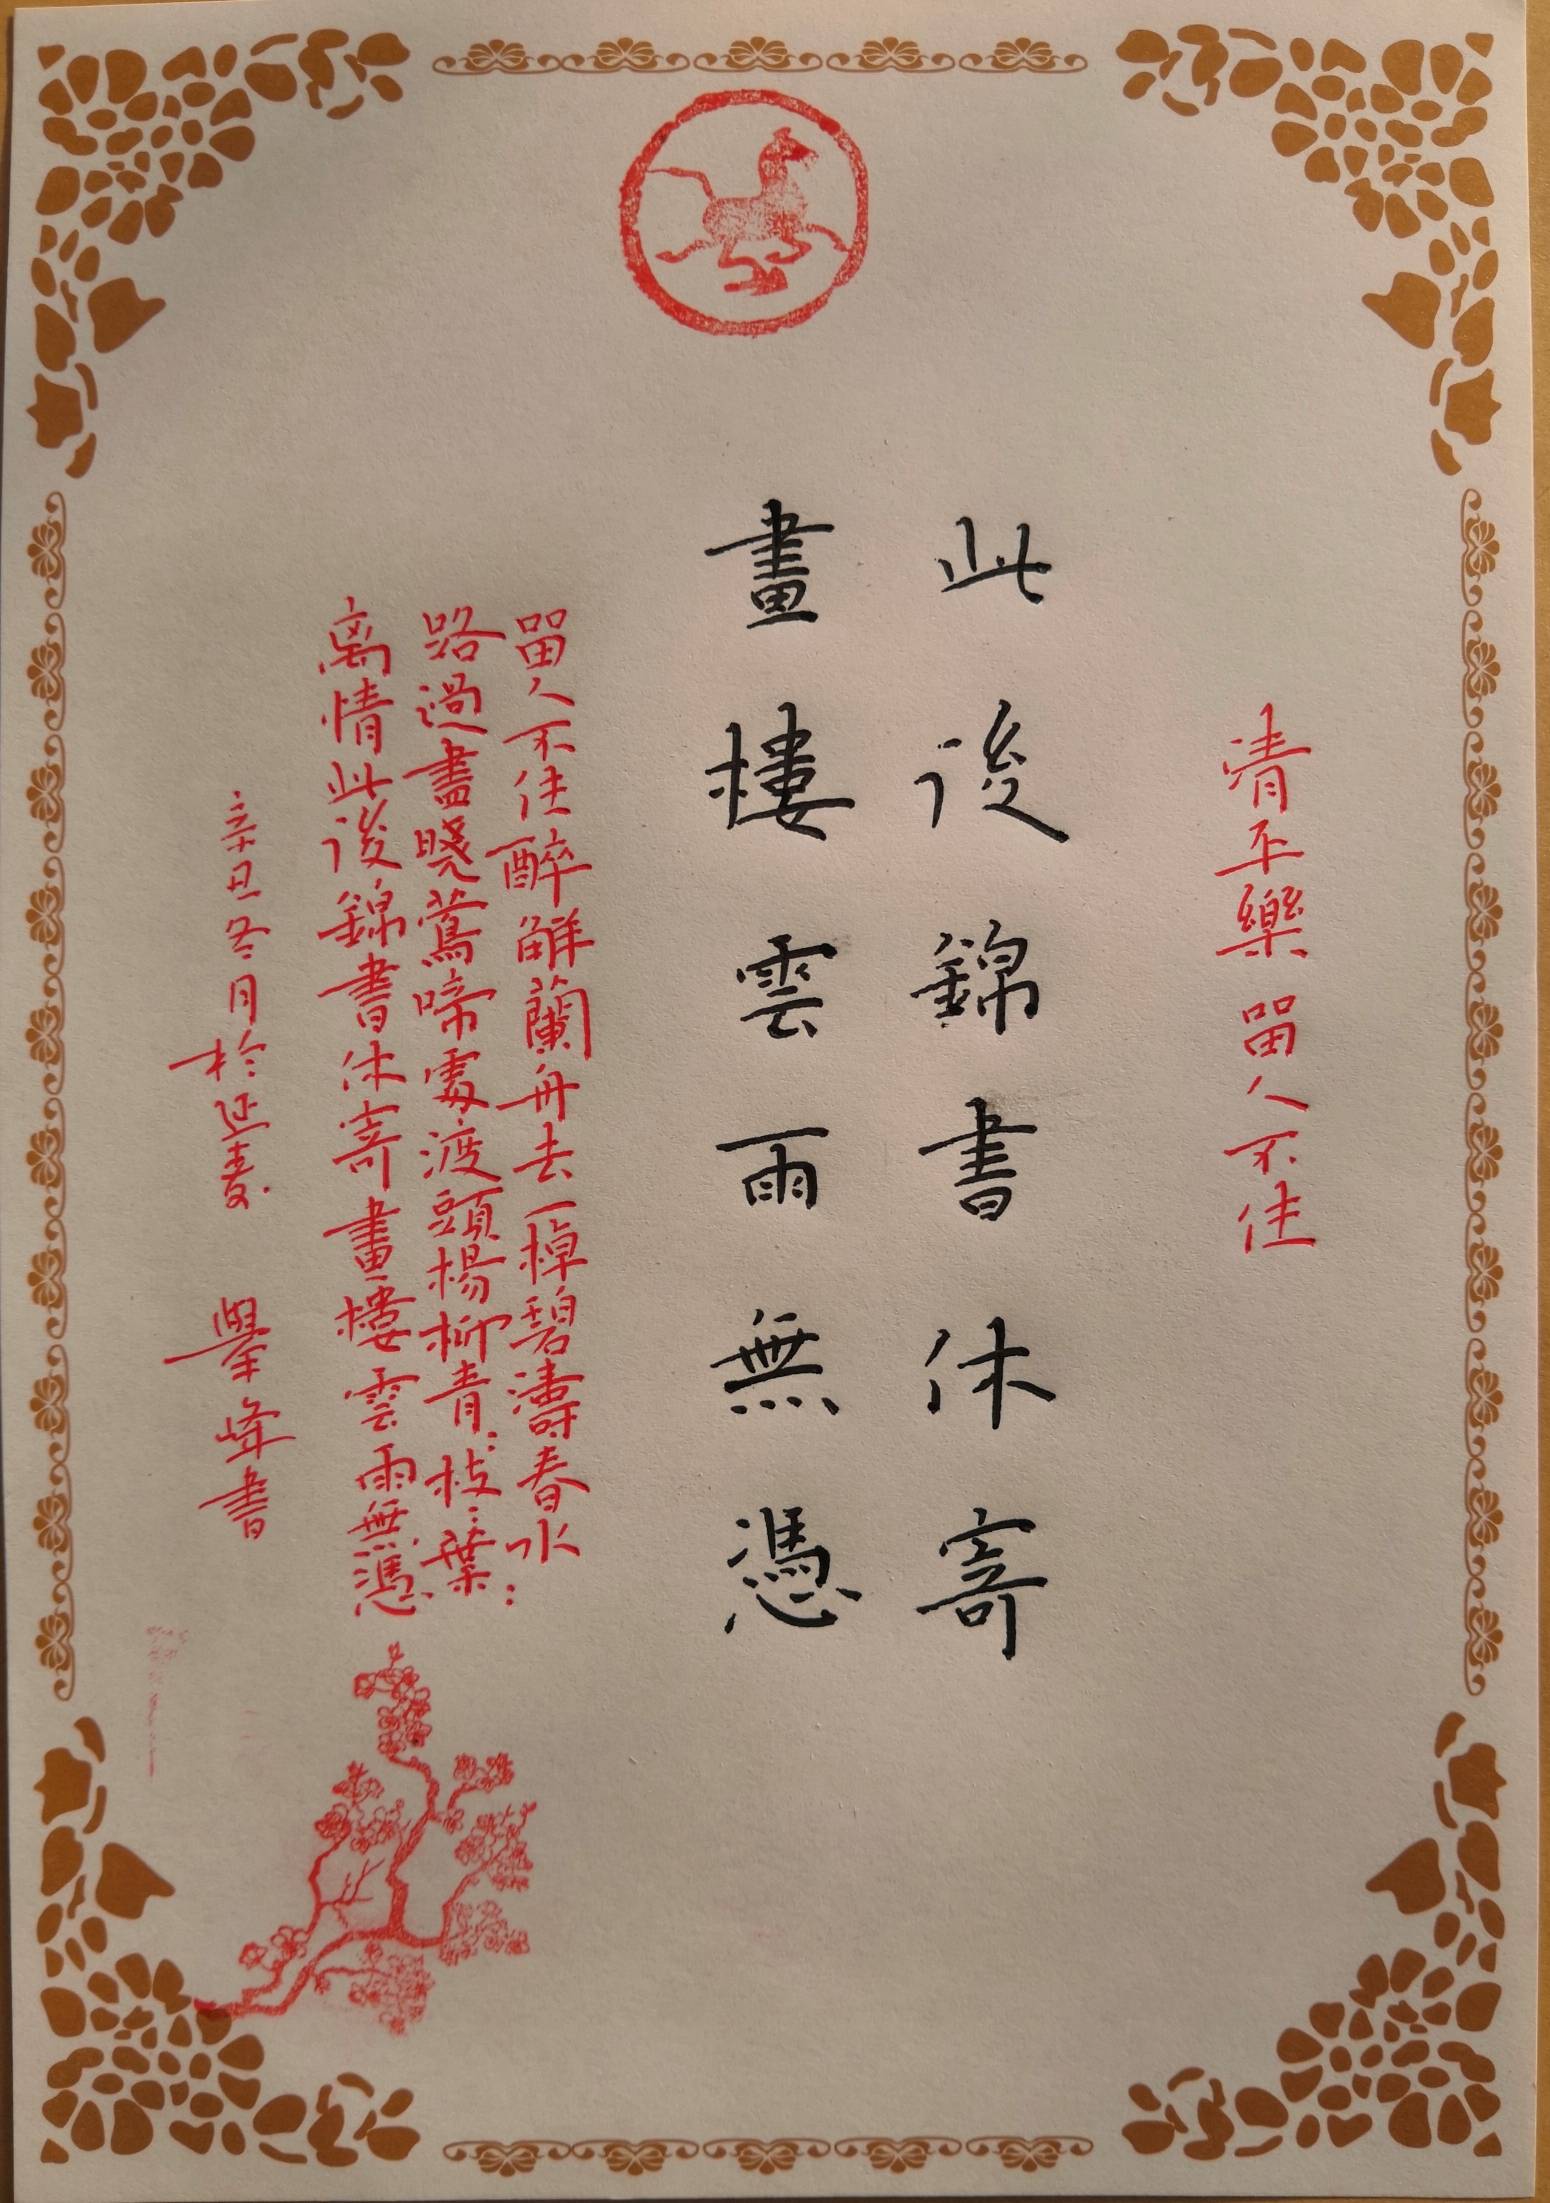 清平樂 畱人不住
此後錦書休寄
畫樓雲雨無憑
畱人不住醉解蘭舟去一棹碧濤春水
路過盡晓鶯啼處渡頭楊柳青:枝:葉:
离情此後錦書休寄畫樓雲雨無憑
辛丑冬月於延 峰書